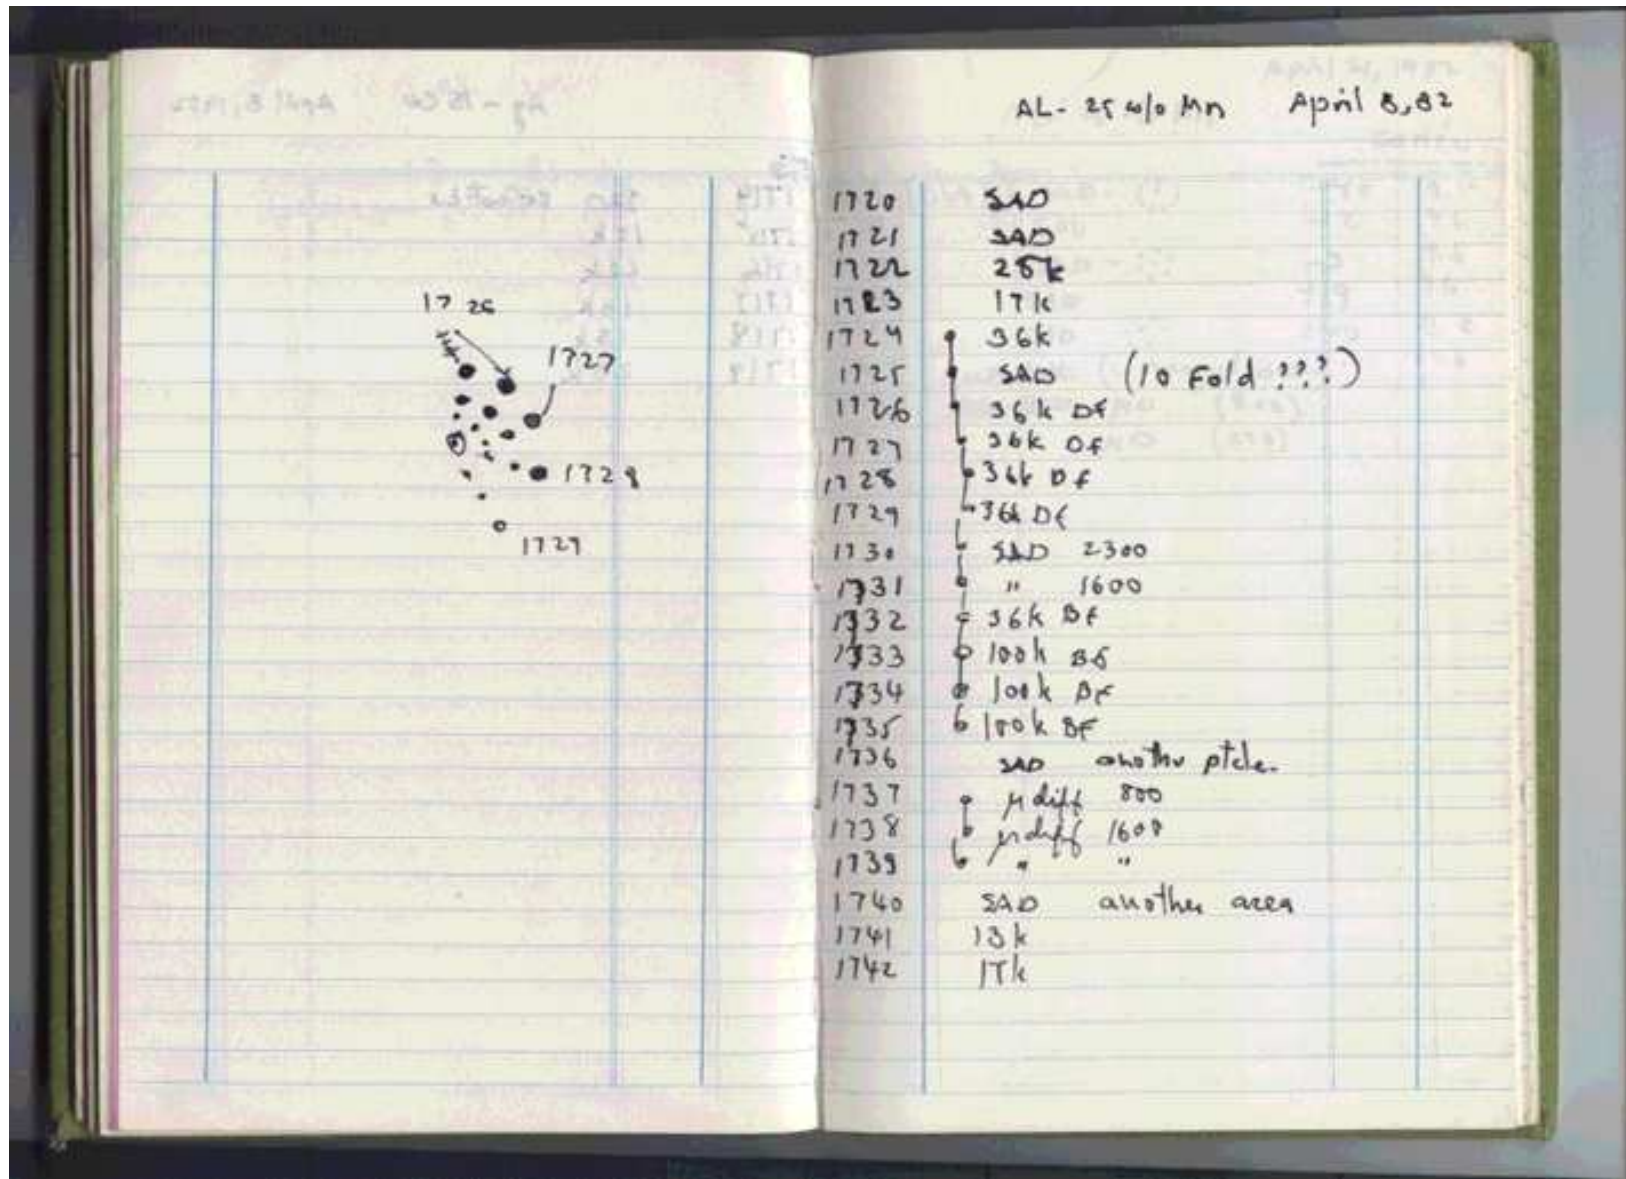 1726
1727
1728
1729
AL- 25 w/o Mn April 8, 82
1720 SAD
1721 SAD
1722 25k
1723 17k
1724 36k
1725 SAD (10 Fold ???)
1726 36k DF
1727 36k DF
1728 36k DF
1729 36k DF
1730 SAD 2300
1731 " 1600
1732 36k BF
1733 100k BF
1734 100k BF
1735 100k BF
1736 SAD another ptcle.
1737 μ diff 800
1738 μ diff 1600
1739 " "
1740 SAD another area
1741 13k
1742 17k